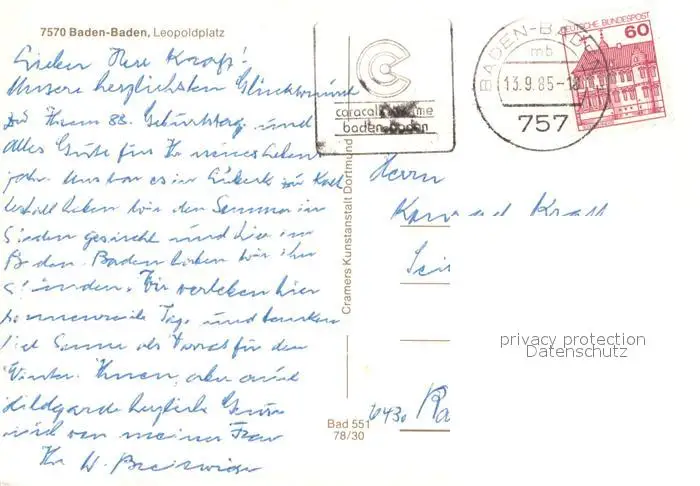 7570 Baden-Baden, Leopoldplatz
Lieber Herr Kraft!
Unsere herzlichsten Glückwünsche
zu Ihrem 88. Geburtstag und
Alles Gute für Ihr neues Lebens
jahr. Uns war es in Lübeck zu kalt
deshalb haben wir den Sommer im
Süden gesucht und hier in
Baden-Baden haben wir ihn
gefunden. Wir verleben hier
sonnenreiche Tage und tanken
viel Sonne als Vorrat für den
Winter. Ihnen, aber auch
Hildegarde herzliche Grüße
und von meiner Frau
Ihr W.
caracalla therme
baden-baden
BADEN-BADEN
mb
13.9.85-1
757
DEUTSCHE BUNDESPOST
60
Cramers Kunstanstalt Dortmund
Herrn
Konrad Kraft
6430 Ba
Bad 551
78/30
privacy protection
Datenschutz